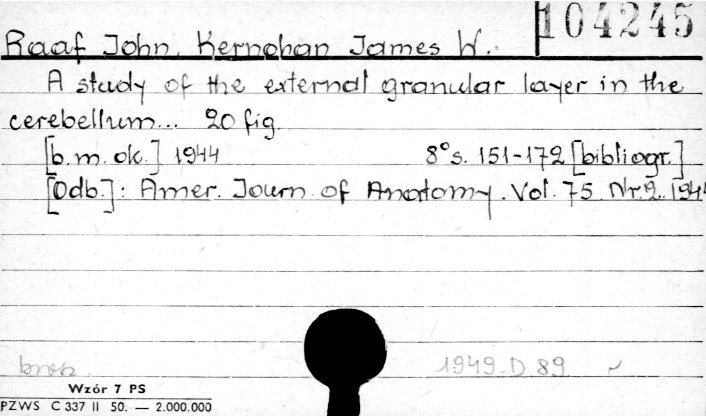 104245
Raaf John, Kernohan James W.
A study of the external granular layer in the
cerebellum... 20 fig.
[b.m.ok.] 1944 8°s. 151-172 [bibliogr.]
[Odb.]: Amer. Journ. of Anatomy. Vol. 75 Nr. 2. 194
1949 D 89
Wzór 7 PS
PZWS C 337 II 50. — 2.000.000